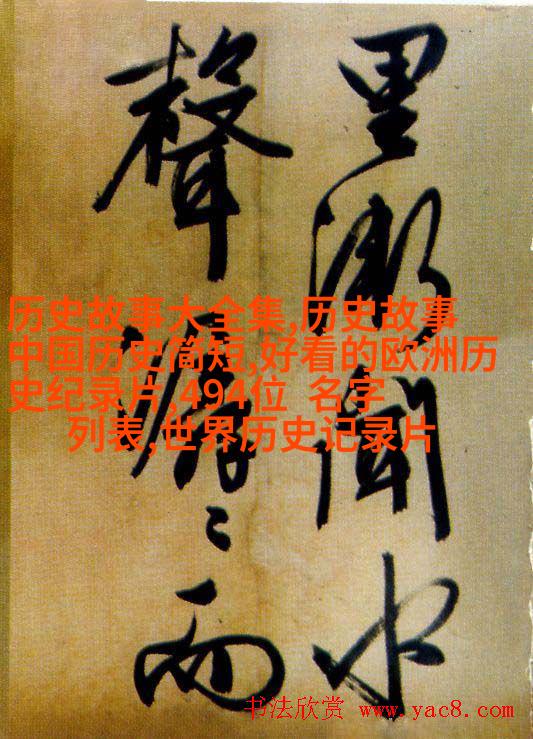 里漸聞水
聲潺〻而
历史故事大全集,历史故事
中国历史简短,好看的欧洲历
史纪录片,494位 名字
列表,世界历史记录片
书法欣赏 www.yac8.com